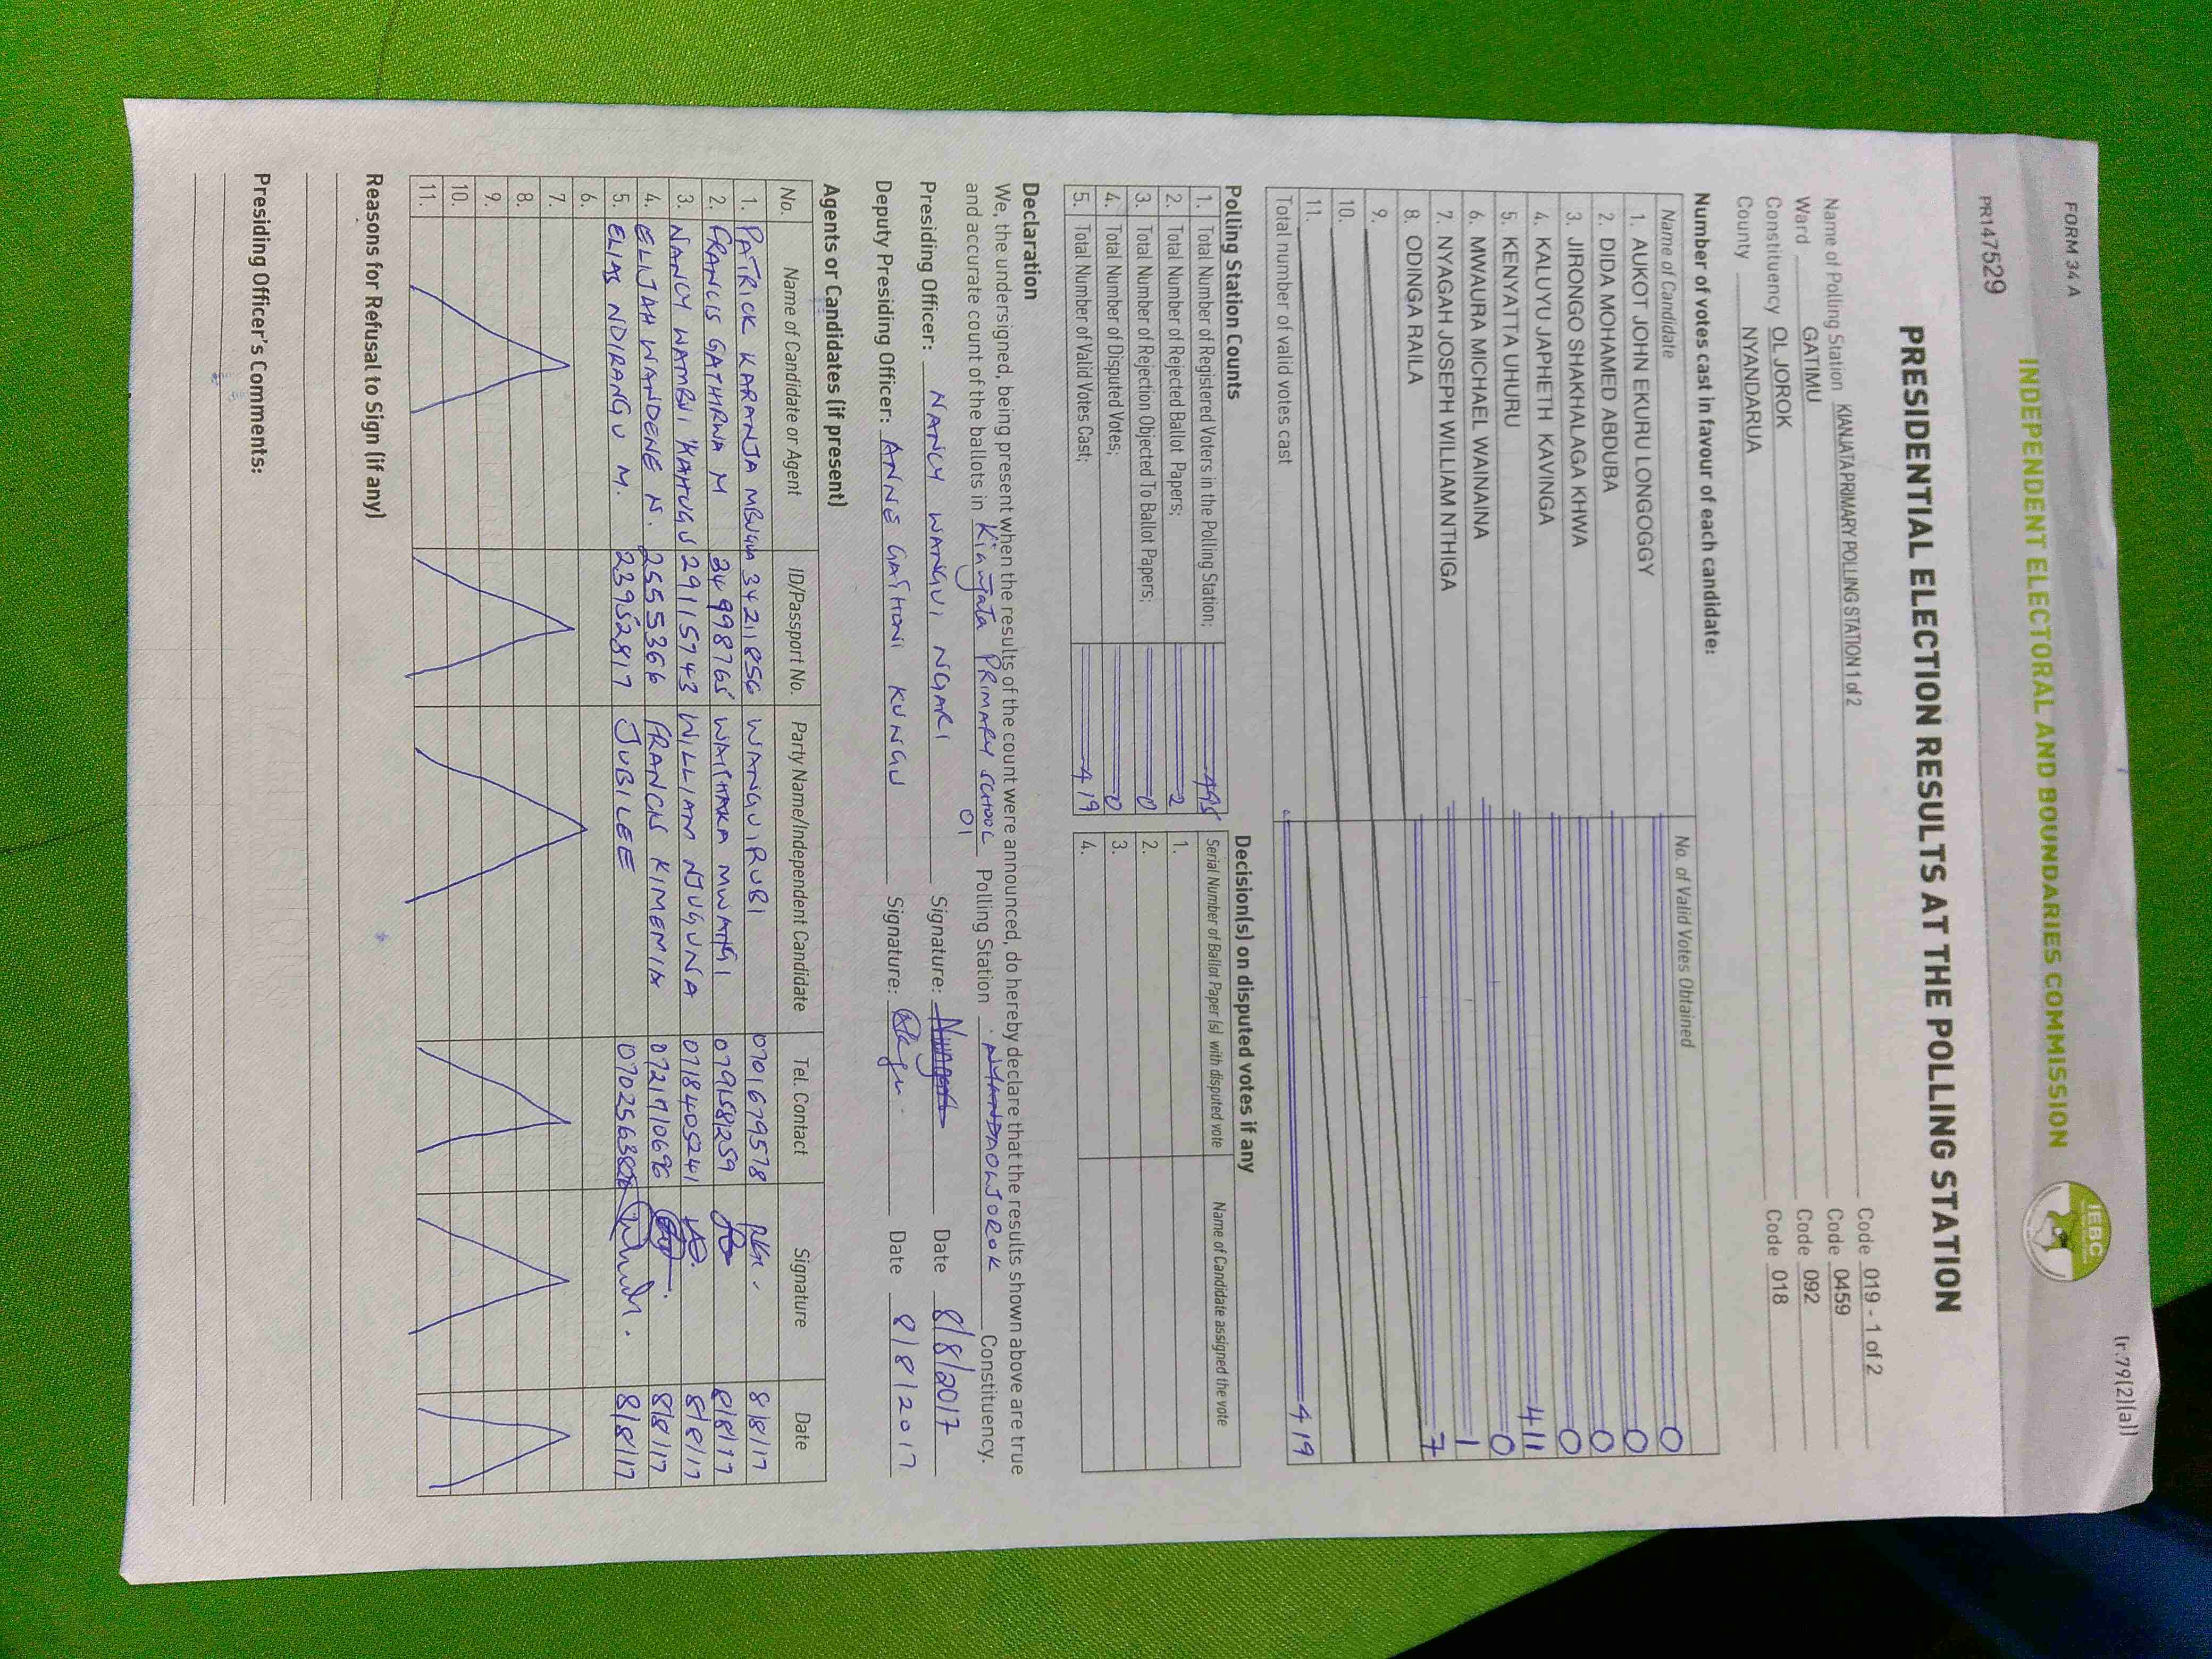 (r.79(2)(a))
FORM 34 A
INDEPENDENT ELECTORAL AND BOUNDARIES COMMISSION
IEBC
PR147529
PRESIDENTIAL ELECTION RESULTS AT THE POLLING STATION
Name of Polling Station KIANJATA PRIMARY POLLING STATION 1 of 2 Code 019 - 1 of 2
Ward GATIMU Code 0459
Constituency OL JOROK Code 092
County NYANDARUA Code 018
Number of votes cast in favour of each candidate:
Name of Candidate No. of Valid Votes Obtained
1. AUKOT JOHN EKURU LONGOGGY 0
2. DIDA MOHAMED ABDUBA 0
3. JIRONGO SHAKHALAGA KHWA 0
4. KALUYU JAPHETH KAVINGA 0
5. KENYATTA UHURU 411
6. MWAURA MICHAEL WAINAINA 0
7. NYAGAH JOSEPH WILLIAM NTHIGA 1
8. ODINGA RAILA 7
9.
10.
11.
Total number of valid votes cast 419
Polling Station Counts
1. Total Number of Registered Voters in the Polling Station;
2. Total Number of Rejected Ballot Papers; 2
3. Total Number of Rejection Objected To Ballot Papers; 0
4. Total Number of Disputed Votes; 0
5. Total Number of Valid Votes Cast; 419
Decision(s) on disputed votes if any
Serial Number of Ballot Paper (s) with disputed vote Name of Candidate assigned the vote
1.
2.
3.
4.
Declaration
We, the undersigned, being present when the results of the count were announced, do hereby declare that the results shown above are true
and accurate count of the ballots in Kianjata PRIMARY SCHOOL 01 Polling Station OLJOROK Constituency.
Presiding Officer: NANCY WANGUI NGARI Signature: Date 8/8/2017
Deputy Presiding Officer: ANNE GATHONI KUNGU Signature: Date 8/8/2017
Agents or Candidates (if present)
No. Name of Candidate or Agent ID/Passport No. Party Name/Independent Candidate Tel. Contact Signature Date
1. PATRICK KARANJA MBUGUA 34211856 WANGUI RUBI 0701679578 8/8/17
2. FRANCIS GATHIRWA M 34998765 WAITHAKA MWANGI 0791581259 8/8/17
3. NANCY WAMBUI KAHUGU 29115743 WILLIAM NJUGUNA 0718405241 8/8/17
4. ELIJAH WANDENE N. 25555366 FRANCIS KIMEMIA 0721710696 8/8/17
5. ELIAS NDIRANGU M. 23952817 JUBILEE 8/8/17
6.
7.
8.
9.
10.
11.
Reasons for Refusal to Sign (if any)
Presiding Officer's Comments: